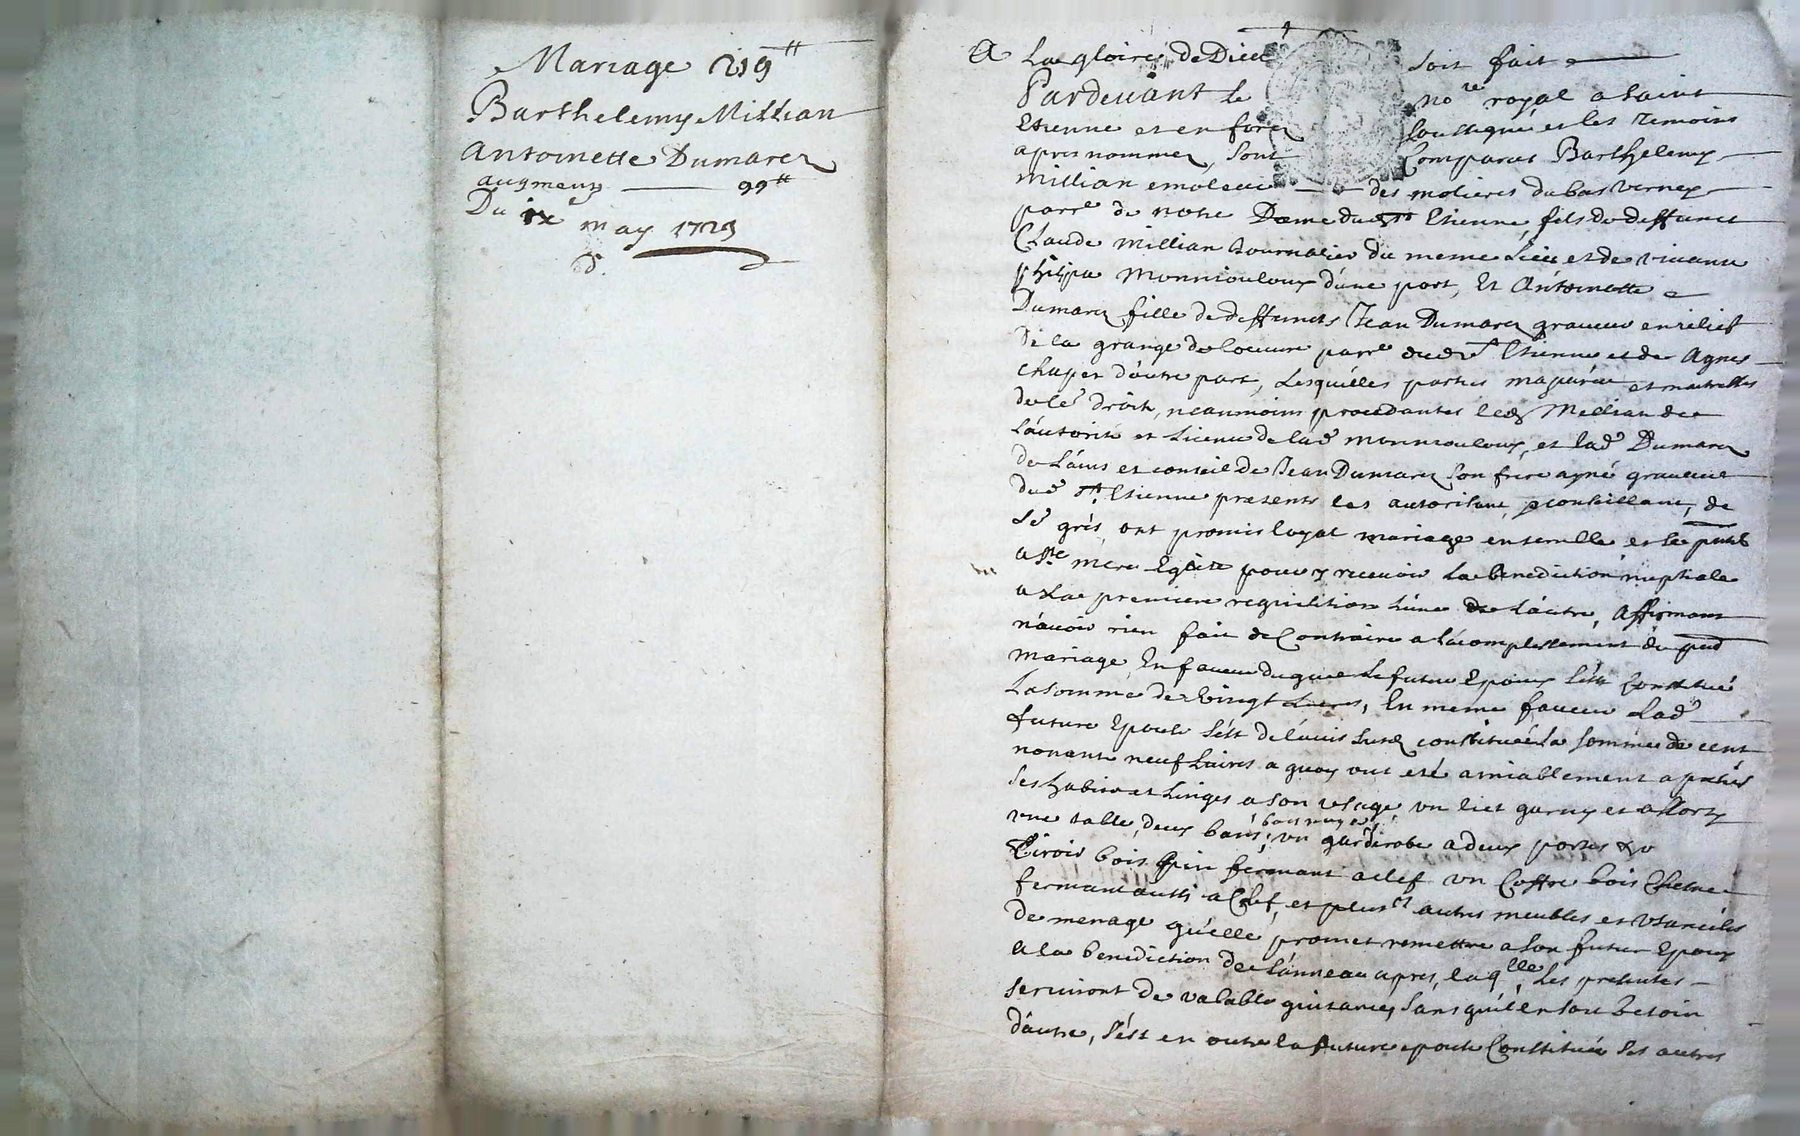 Mariage 219ᵗᵗ
Barthelemy Millian
Antoinette Dumarez
augment 99ᵗᵗ
Du ix may 1729
A La gloire de Dieu soit fait
Pardevant le noʳᵉ royal a saint
Etienne et en forez soussigné et les temoins
apres nommez, sont Comparus Barthelemy
Millian emoleur des molieres du bas vernay
parʳᵉ de notre Dame dud Sᵗ Etienne, fils de deffunct
Claude Millian Journalier du meme Lieu et de vivante
philipa Monniouloux d'une part, Et Antoinette
Dumarez fille de deffuncts Jean Dumarez graveur en relief
de la grange de loeuure parʳᵉ dud Sᵗ Etienne et de Agnes
chapez d'autre part, Lesquelles parties majeures et maitresses
de leʳ droits, neanmoins procedantes led Millian de
L'autorité et Licence de lad Monniouloux, et lad Dumarez
de L'avis et conseil de Jean Dumarez son frere ayné graveur
dud Sᵗ Etienne presents les autorisant, conseillant, de
Lʳ grés, ont promis loyal mariage ensemble et se
a Sᵗᵉ mere Eglise pour y recevoir La benediction nuptiale
a La premiere requisition L'une de L'autre, affirmant
n'avoir rien fait de Contraire a L'acomplissement du
mariage, En faveur duquel Le futur Epoux s'est constitué
La somme de vingt Livres, En meme faveur Lad
future Epouse s'est de L'avis constituée La somme de cent
nonante neuf Livres a quoy ont eté amiablement apretiés
ses habits et Linges a son usage un lict garny et assorty
une table, deux bans, un garderobe a deux portes &
Tiroir bois pin fermant a clef un Coffre bois Chesne
fermant aussi a Clef, et plusʳˢ autres meubles et Ustanciles
de menage qu'elle promet remettre a son futur Epoux
a la benediction de L'anneau apres, laqˡˡᵉ, Les presentes
serviront de valable quitance, sans qu'il en soit besoin
d'autre, s'est en outre la future epouse Constituée ses autres